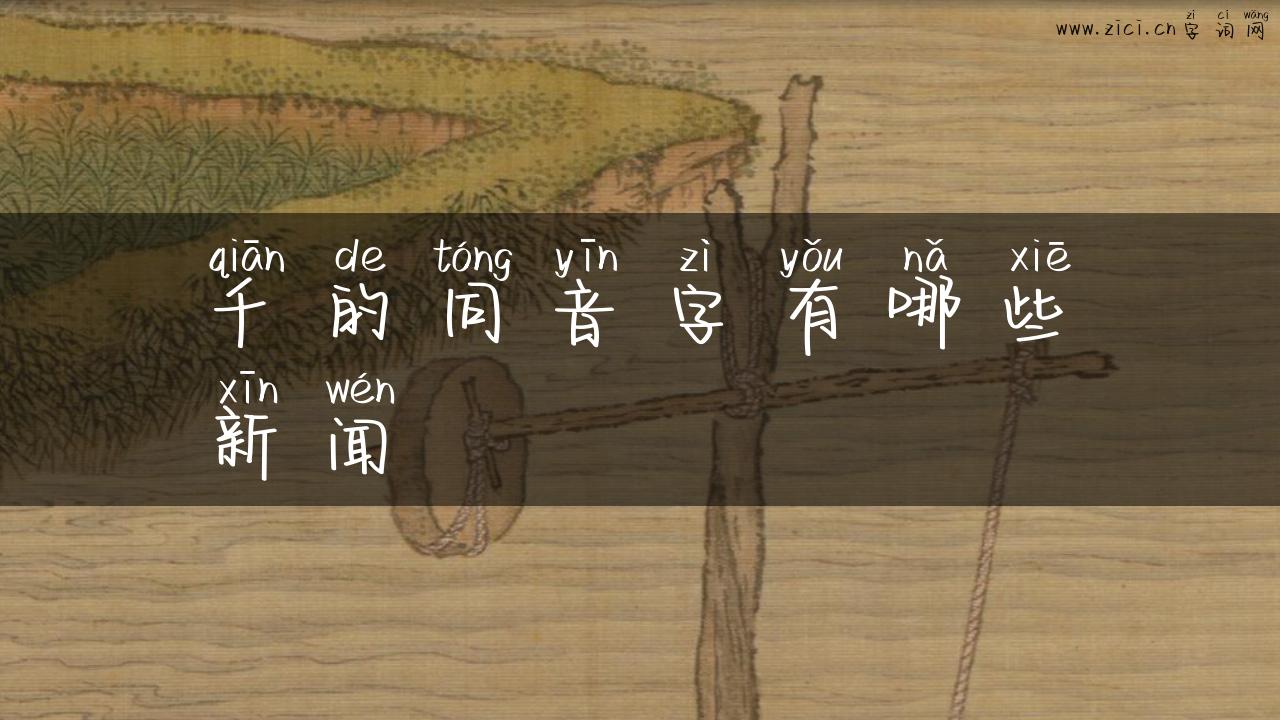 zì cí wǎng
www.zici.cn 字词网
qiān de tóng yīn zì yǒu nǎ xiē
千的同音字有哪些
xīn wén
新闻